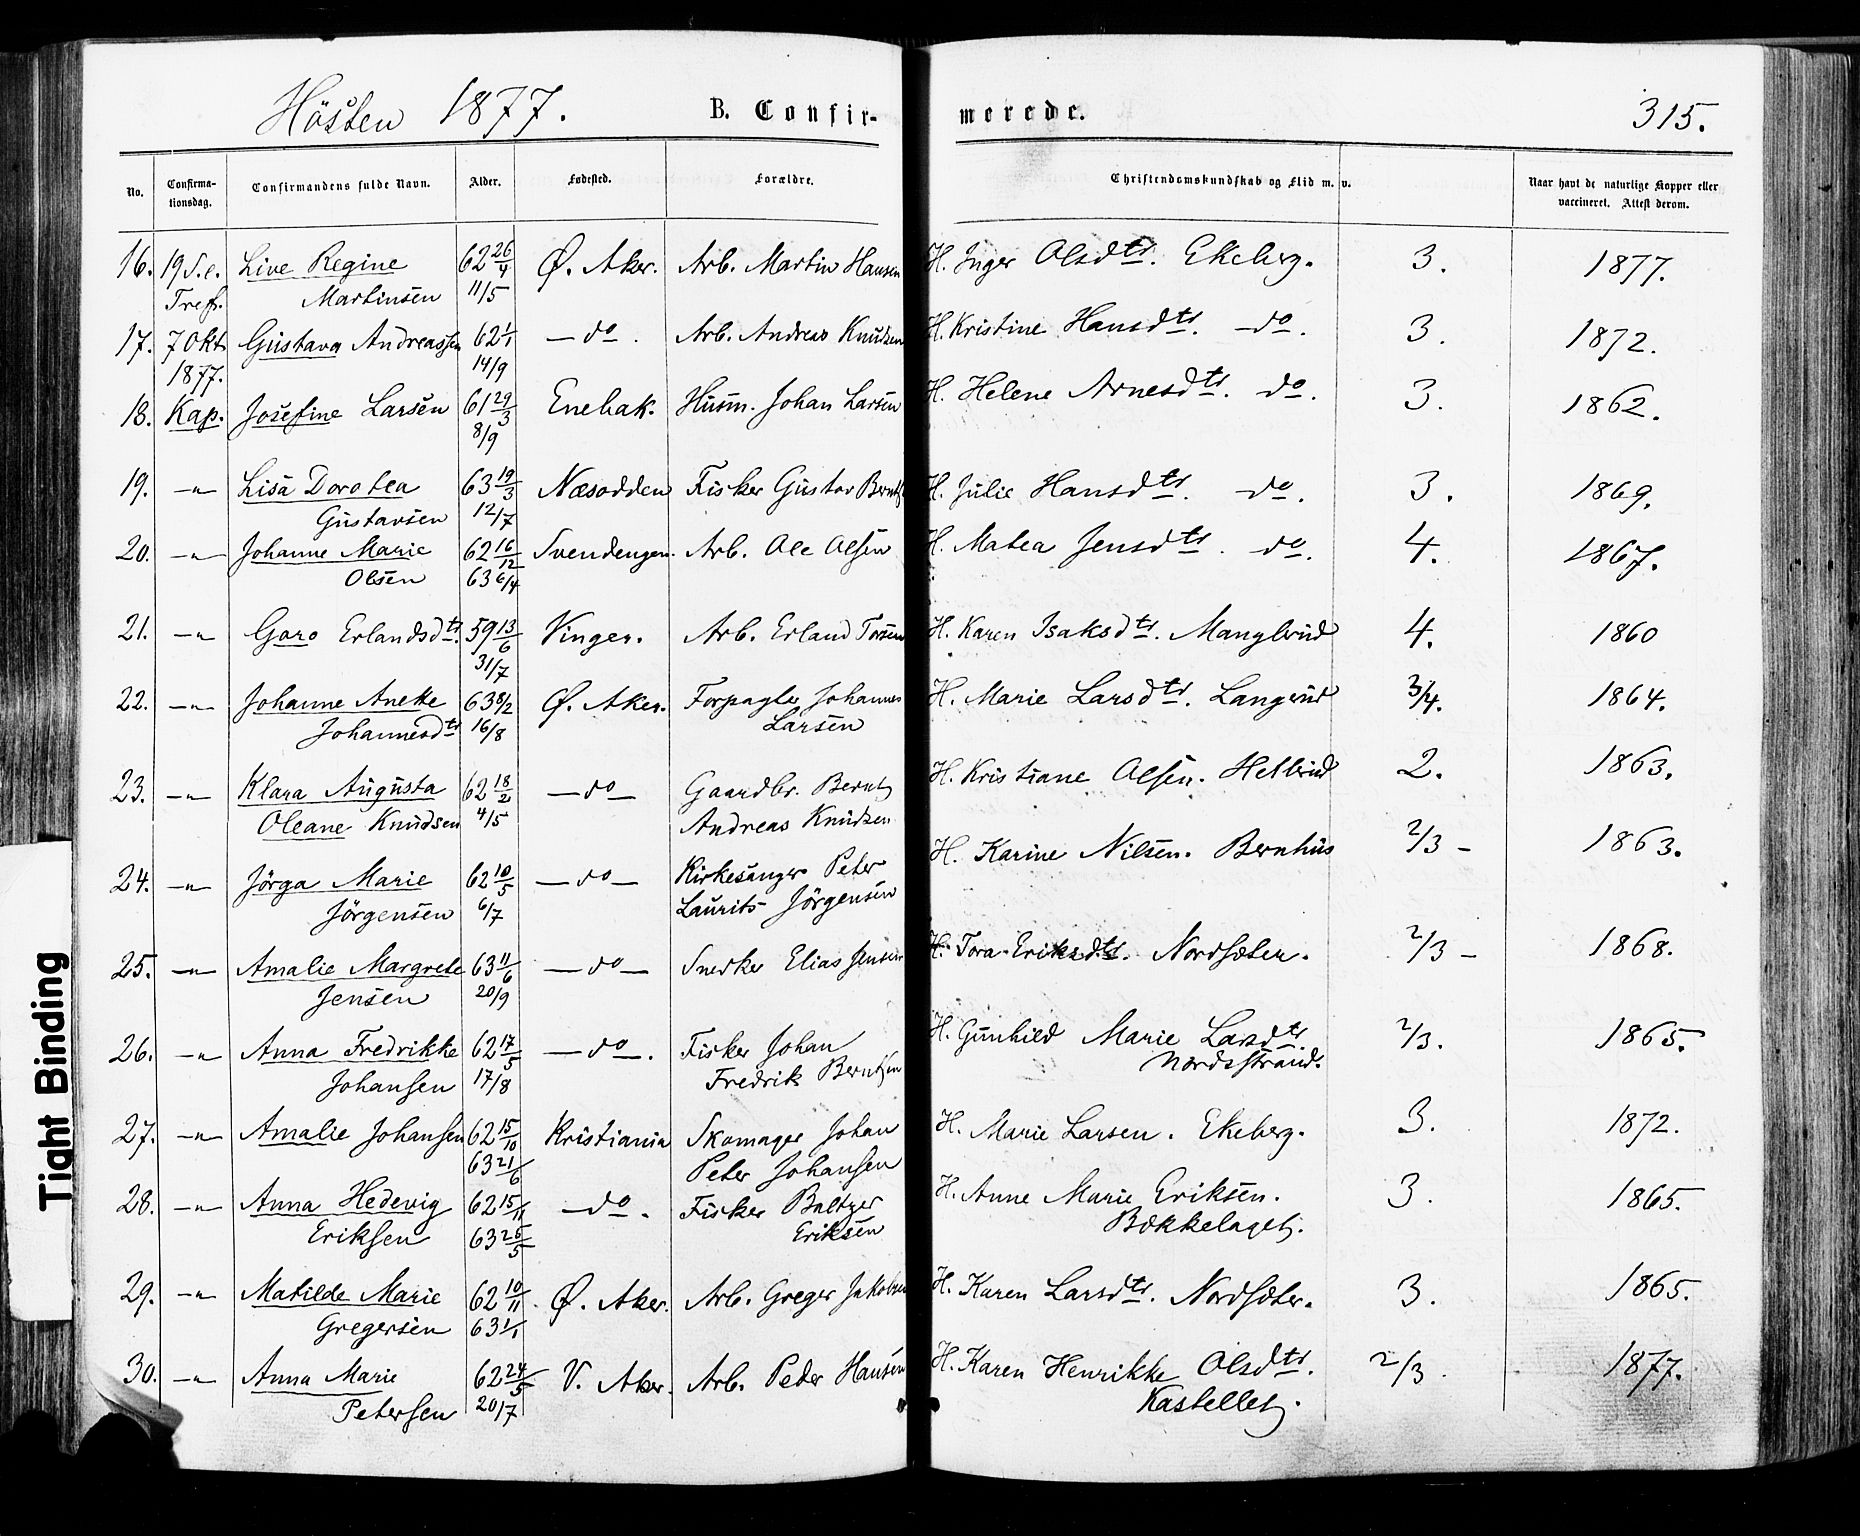 Hösten 1877. B. Confir- merede. 315.
No. Confirma-tionsdag. Confirmandens fulde Navn. Alder. Fødested. Forældre. Christendomskundskab og Flid m. v. Naar havt de naturlige Kopper eller vaccineret. Attest derom.
16. 19 S. e. Live Regine 62 26/4 Ø. Aker. Arb. Martin Hansen H. Inger Olsdtr. Ekeberg. 3. 1877.
Tref. Martinsen 11/5
17. 7 Okt Gustava Andreassen 62 1/1 — do . Arb. Andreas Knudsen H. Kristine Hansdtr. — do. 3. 1872.
1877. 14/9
18. Kap. Josefine Larsen 61 29/3 Enebak. Husm. Johan Larsen H. Helene Arnesdtr. do. 3. 1862.
8/9
19. —"— Lisa Dorotea 63 19/3 Næsodden Fisker Gustav Bernts H. Julie Hansdtr. do. 3. 1869.
Gustavsen 12/7
20. —"— Johanne Marie 62 16/12 Svendengen. Arb. Ole Olsen H. Matea Jensdtr. do. 4. 1867.
Olsen 63 6/4
21. —"— Goro Erlandsdtr. 59 13/6 Vinger. Arb. Erland H. Karen Isaksdtr. Manglerud 4. 1860
31/7
22. —"— Johanne Anette 63 8/2 Ø. Aker. Forpagter Johannes H. Marie Larsdtr. Langerud 3/4. 1864.
Johannesdtr 16/8 Larsen
23. —"— Klara Augusta 62 18/2 — do — Gaardbr. Bernt H. Kristiane Olsen. Hellerud 2. 1863.
Oleane Knudsen 4/5 Andreas Knudsen
24. —"— Jörga Marie 62 10/5 — do — Kirkesanger Peter H. Karine Nilsen. Bernhus 2/3 - 1863.
Jörgensen 6/7 Laurits Jörgensen
25. —"— Amalie Margrete 63 11/6 — do — Snedker Elias Jensen H. Tora Eriksdtr. Nordsæter. 2/3 - 1868.
Jensen 20/9
26. —"— Anna Fredrikke 62 17/5 — do —. Fisker Johan H. Gunhild Marie Larsdtr. 2/3. 1865.
Johansen 17/8 Fredrik Berntsen Nordsstrand.
27. —"— Amalie Johansen 62 15/10 Kristiania Skomager Johan H. Marie Larsen. Ekeberg. 3. 1872.
63 21/6 Peter Johansen
28. —"— Anna Hedevig 62 15/11 — do . Fisker Baltzer H. Anne Marie Eriksen. 3. 1865.
Eriksen 63 25/5 Eriksen Bækkelaget.
29. —"— Matilde Marie 62 10/11 Ø. Aker. Arb. Greger Jakobsen H. Karen Larsdtr. Nordsæter. 3. 1865.
Gregersen 63 1/1
30. —"— Anna Marie 62 24/5 V. Aker. Arb. Peder Hansen H. Karen Henrikke Olsdtr. 2/3. 1877.
Petersen 20/7 Kastellet.
Tight Binding